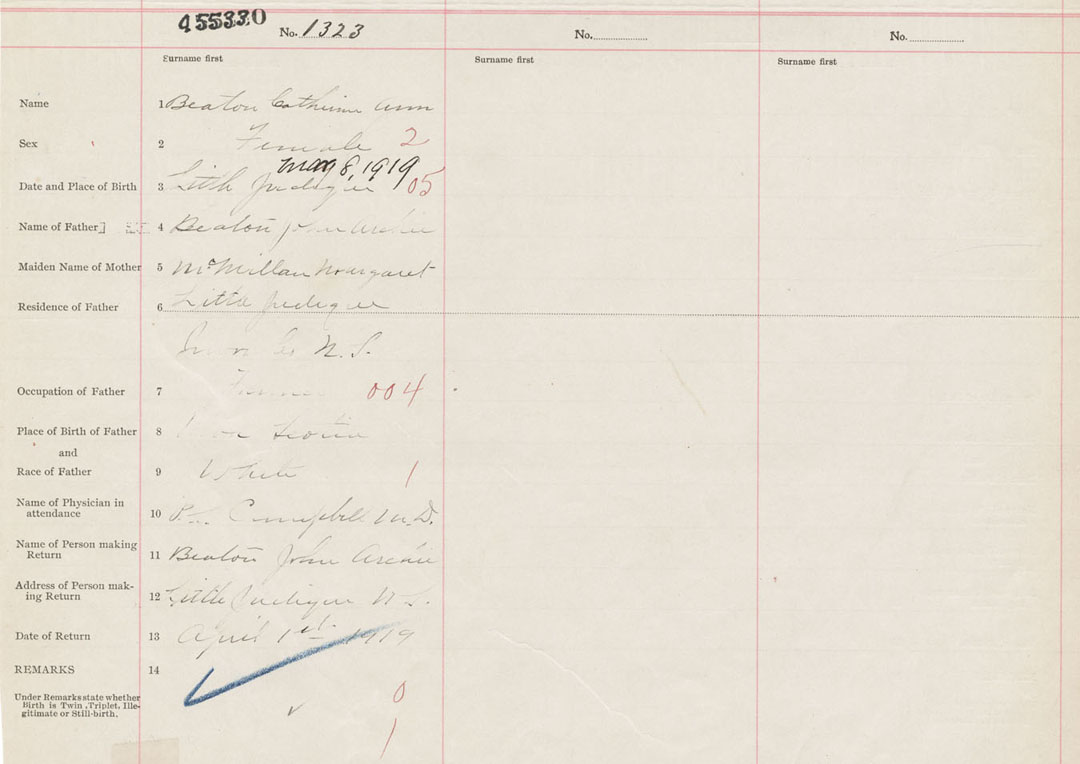 455330
No. 1323
No.
No.
Surname first
Surname first
Surname first
Name 1 Beaton Catherine Ann
Sex 2 Female 2
8, 1919
Date and Place of Birth 3 Little Judique 05
Name of Father 4 Beaton John Archie
Maiden Name of Mother 5 McMillan Margaret
Residence of Father 6 Little Judique
N.S.
Occupation of Father 7 Farmer 004
Place of Birth of Father 8 Scotia
and
Race of Father 9 White 1
Name of Physician in
attendance 10 Campbell M.D.
Name of Person making
Return 11 Beaton John Archie
Address of Person mak-
ing Return 12 Little Judique N.S.
Date of Return 13 April 1st 1919
REMARKS 14
Under Remarks state whether
Birth is Twin, Triplet, Ille-
gitimate or Still-birth.
0
1